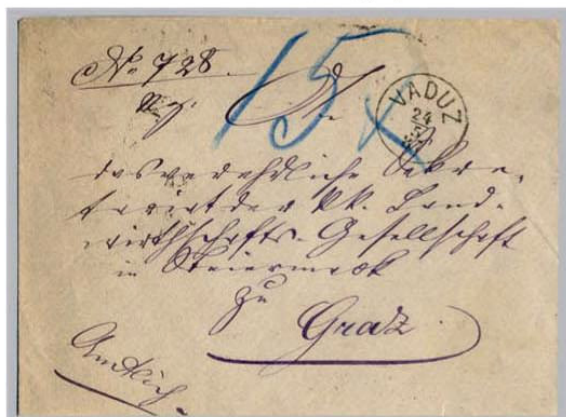 No 728.
15x
An
VADUZ
24
5
das verehrliche Sekre-
tariat der kk. Land-
wirthschafts-Gesellschaft
in Steiermark
zu
Graz.
Amtlich.